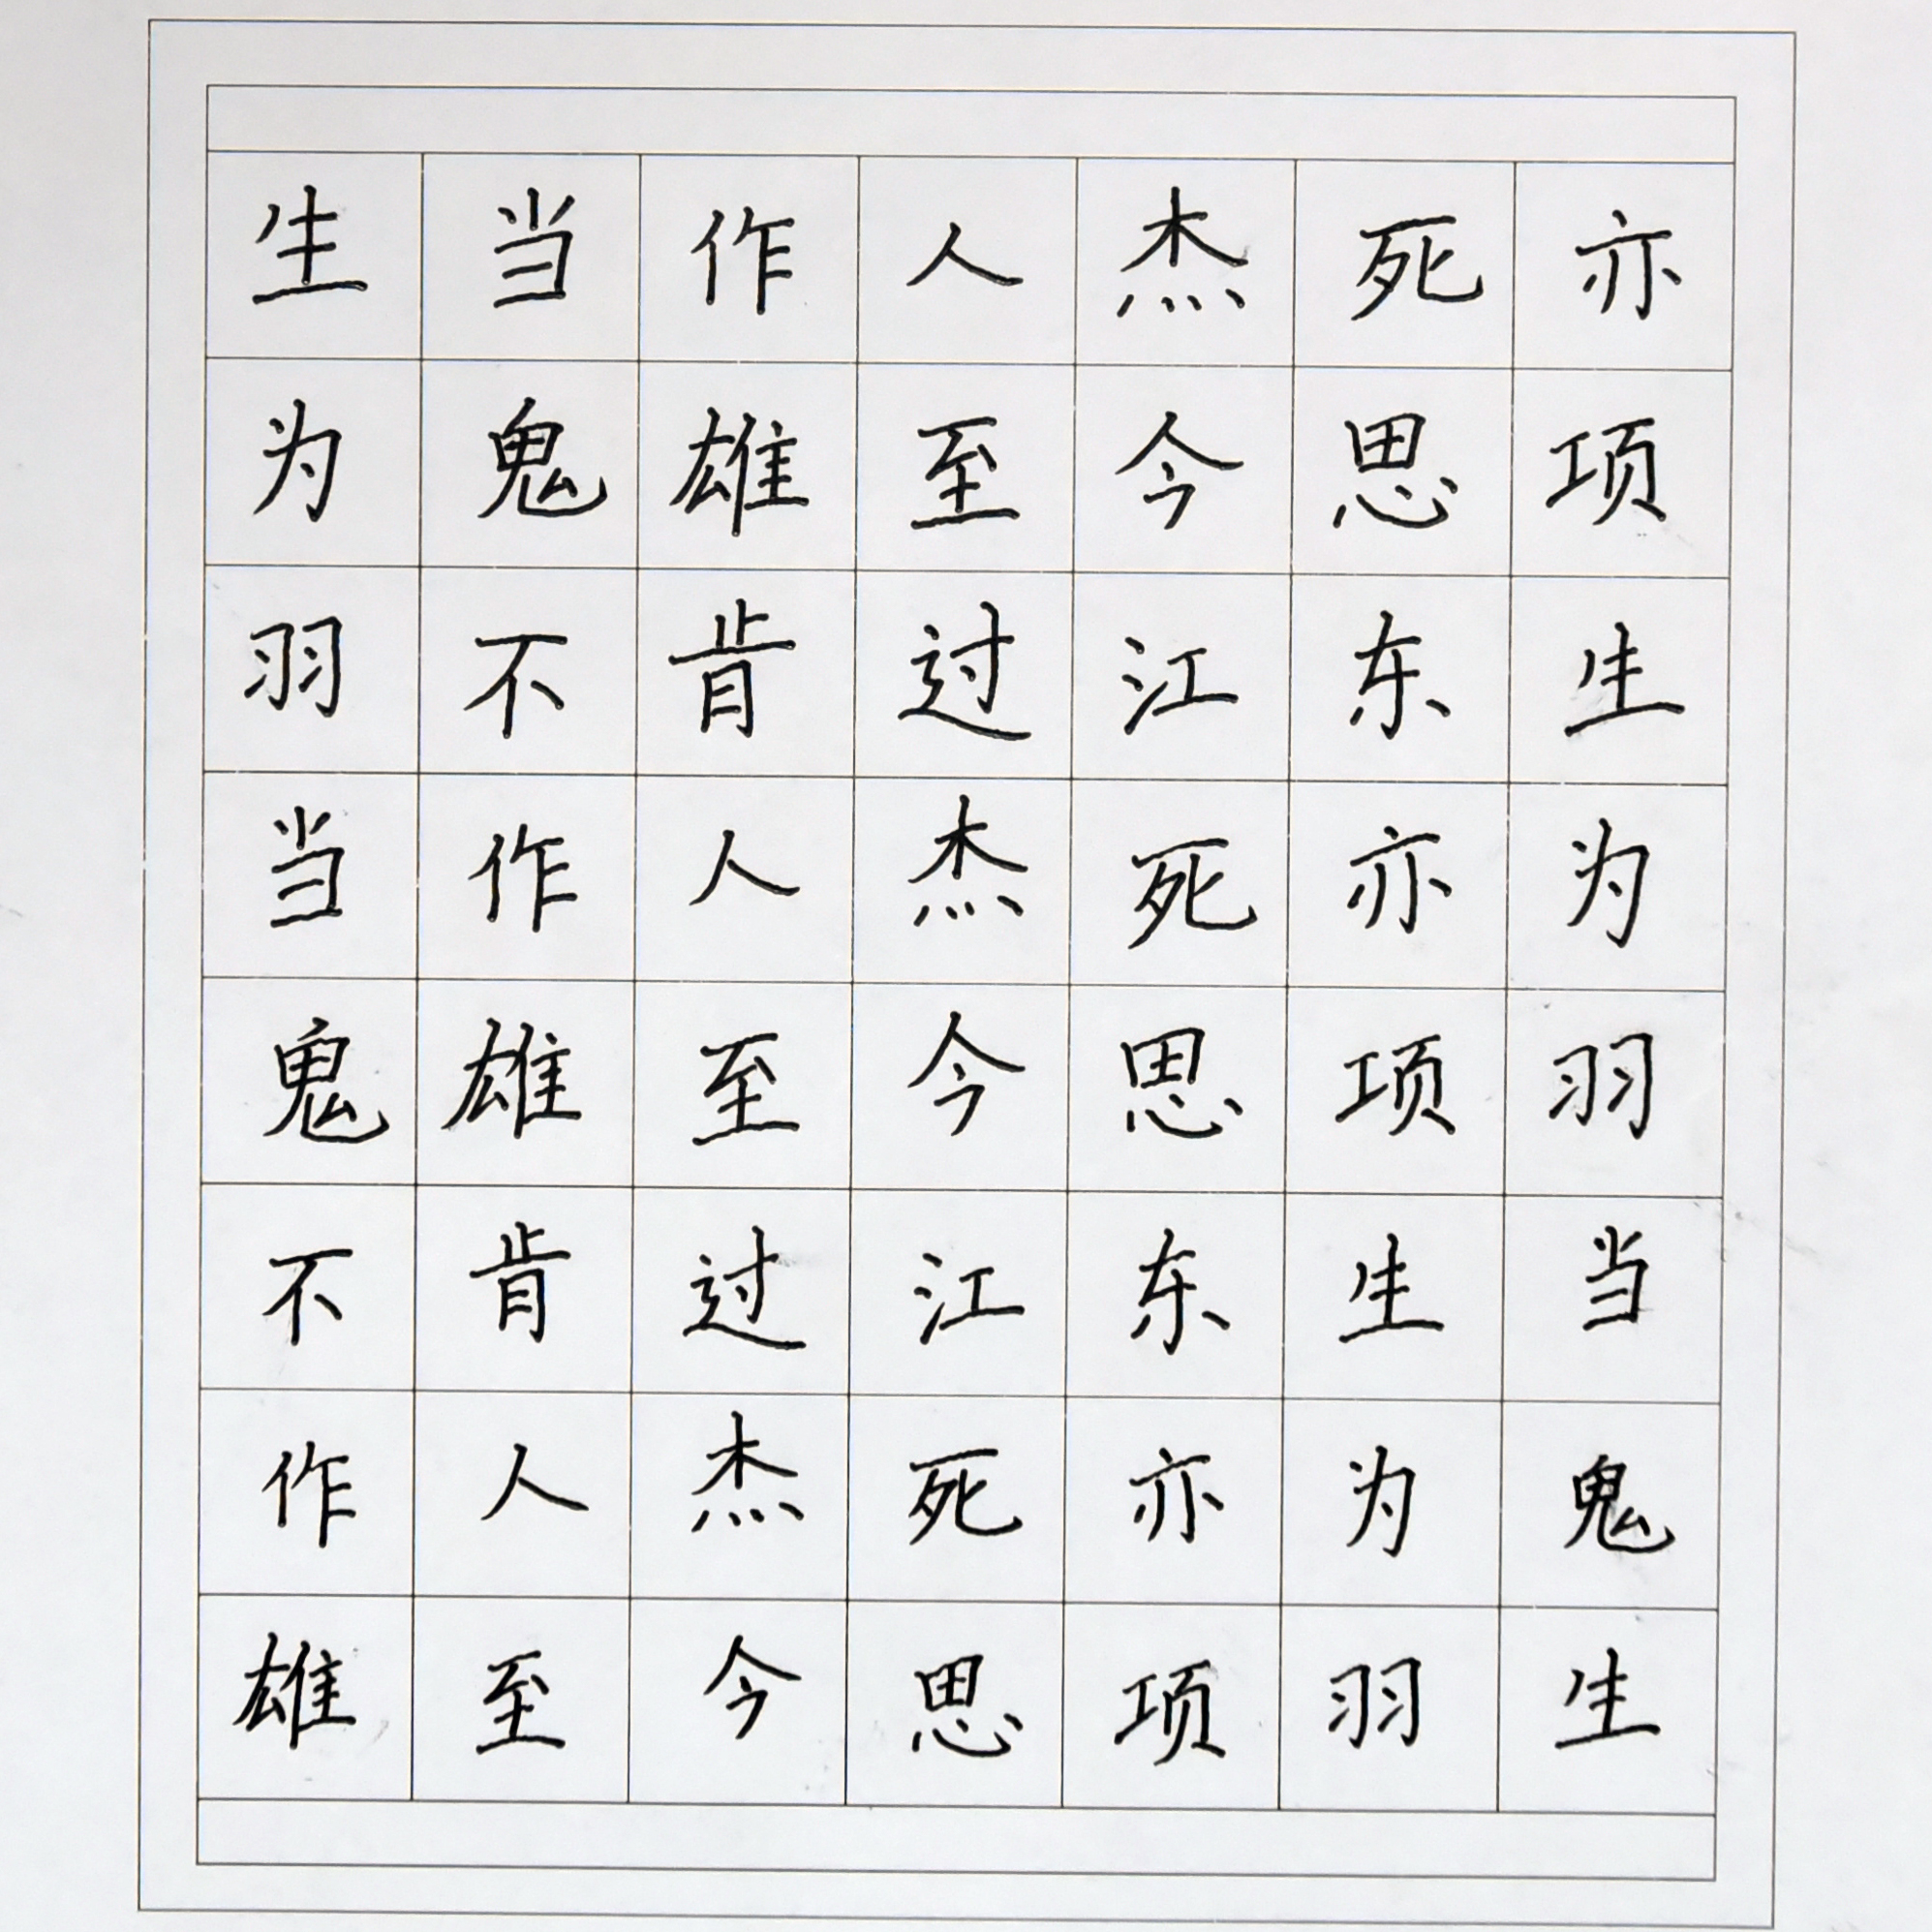 生当作人杰死亦
为鬼雄至今思项
羽不肯过江东生
当作人杰死亦为
鬼雄至今思项羽
不肯过江东生当
作人杰死亦为鬼
雄至今思项羽生